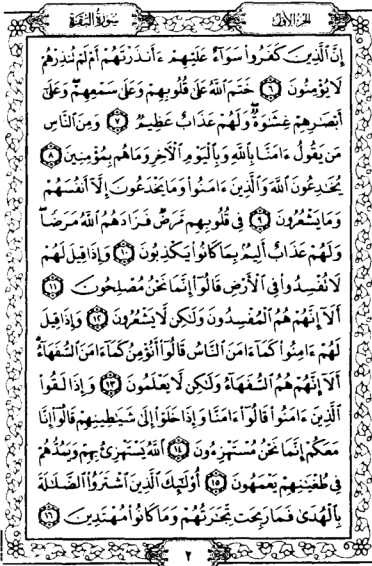 سورة البقرة
الجزء الأول
إِنَّ الَّذِينَ كَفَرُوا سَوَاءٌ عَلَيْهِمْ ءَأَنذَرْتَهُمْ أَمْ لَمْ تُنذِرْهُمْ
لَا يُؤْمِنُونَ ٦ خَتَمَ اللَّهُ عَلَىٰ قُلُوبِهِمْ وَعَلَىٰ سَمْعِهِمْ وَعَلَىٰ
أَبْصَٰرِهِمْ غِشَٰوَةٌ وَلَهُمْ عَذَابٌ عَظِيمٌ ٧ وَمِنَ النَّاسِ
مَن يَقُولُ ءَامَنَّا بِاللَّهِ وَبِالْيَوْمِ الْآخِرِ وَمَا هُم بِمُؤْمِنِينَ ٨
يُخَٰدِعُونَ اللَّهَ وَالَّذِينَ ءَامَنُوا وَمَا يَخْدَعُونَ إِلَّا أَنفُسَهُمْ
وَمَا يَشْعُرُونَ ٩ فِي قُلُوبِهِم مَّرَضٌ فَزَادَهُمُ اللَّهُ مَرَضًا
وَلَهُمْ عَذَابٌ أَلِيمٌ بِمَا كَانُوا يَكْذِبُونَ ١٠ وَإِذَا قِيلَ لَهُمْ
لَا تُفْسِدُوا فِي الْأَرْضِ قَالُوا إِنَّمَا نَحْنُ مُصْلِحُونَ ١١
أَلَا إِنَّهُمْ هُمُ الْمُفْسِدُونَ وَلَٰكِن لَّا يَشْعُرُونَ ١٢ وَإِذَا قِيلَ
لَهُمْ ءَامِنُوا كَمَا ءَامَنَ النَّاسُ قَالُوا أَنُؤْمِنُ كَمَا ءَامَنَ السُّفَهَاءُ
أَلَا إِنَّهُمْ هُمُ السُّفَهَاءُ وَلَٰكِن لَّا يَعْلَمُونَ ١٣ وَإِذَا لَقُوا
الَّذِينَ ءَامَنُوا قَالُوا ءَامَنَّا وَإِذَا خَلَوْا إِلَىٰ شَيَٰطِينِهِمْ قَالُوا إِنَّا
مَعَكُمْ إِنَّمَا نَحْنُ مُسْتَهْزِءُونَ ١٤ اللَّهُ يَسْتَهْزِئُ بِهِمْ وَيَمُدُّهُمْ
فِي طُغْيَٰنِهِمْ يَعْمَهُونَ ١٥ أُولَٰئِكَ الَّذِينَ اشْتَرَوُا الضَّلَٰلَةَ
بِالْهُدَىٰ فَمَا رَبِحَت تِّجَٰرَتُهُمْ وَمَا كَانُوا مُهْتَدِينَ ١٦
٢